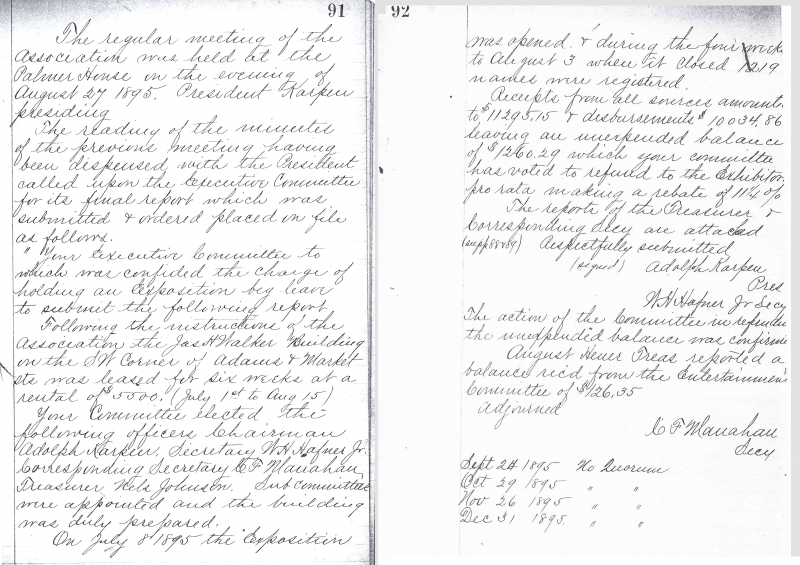 91
The regular meeting of the
Association was held at the
Palmer House on the evening of
August 27 1895. President Karpen
presiding
The reading of the minutes
of the previous meeting having
been dispensed with the President
called upon the Executive Committee
for its final report which was
submitted & ordered placed on file
as follows.
"Your Executive Committee to
which was confided the charge of
holding an Exposition beg leave
to submit the following report
Following the instructions of the
Association the Jas H Walker Building
on the SW Corner of Adams & Market
sts was leased for six weeks at a
rental of $5500. (July 1st to Aug 15)
Your Committee elected the
following officers Chairman
Adolph Karpen, Secretary W H Hafner Jr.
Corresponding Secretary C F Manahan
Treasurer Nels Johnson. Sub committees
were appointed and the building
was duly prepared.
On July 8 1895 the Exposition
92
was opened & during the four weeks
to August 3 when it closed 1219
names were registered.
Receipts from all sources amount
to $11295.15 & disbursements $10034.86
leaving an unexpended balance
of $1260.29 which your committee
has voted to refund to the Exhibitor
pro rata making a rebate of 11¼ %
The reports of the Treasurer &
Corresponding Secy are attached
(see pp 88 & 89) Respectfully submitted
(signed) Adolph Karpen
Pres
W H Hafner Jr Secy
The action of the Committee in
the unexpended balance was
August Treas reported a
balance rec'd from the Entertainment
Committee of $126.35
Adjourned
C F Manahan
Secy
Sept 24 1895 No Quorum
Oct 29 1895 " "
Nov 26 1895 " "
Dec 31 1895. " "